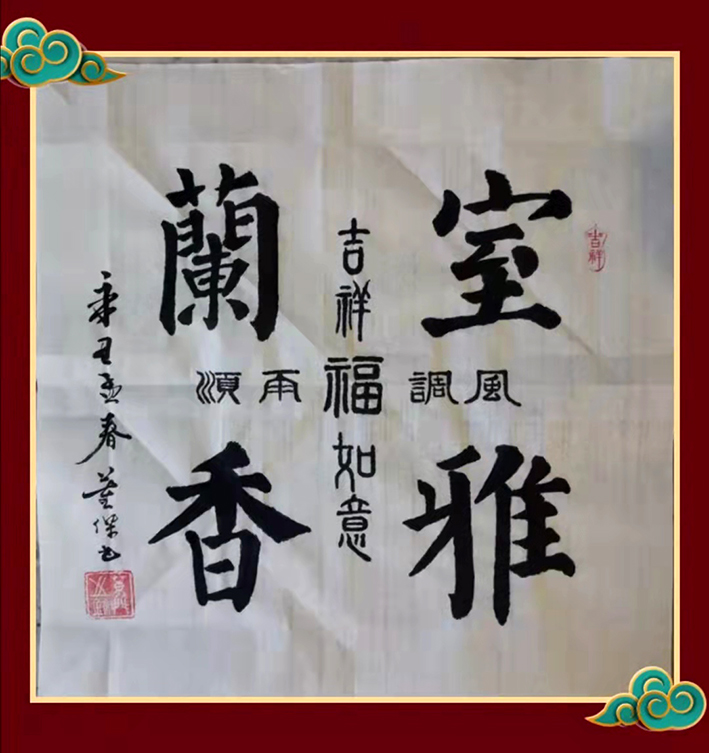 室雅
蘭香
吉祥福如意
風調
雨順
辛丑孟春
吉祥